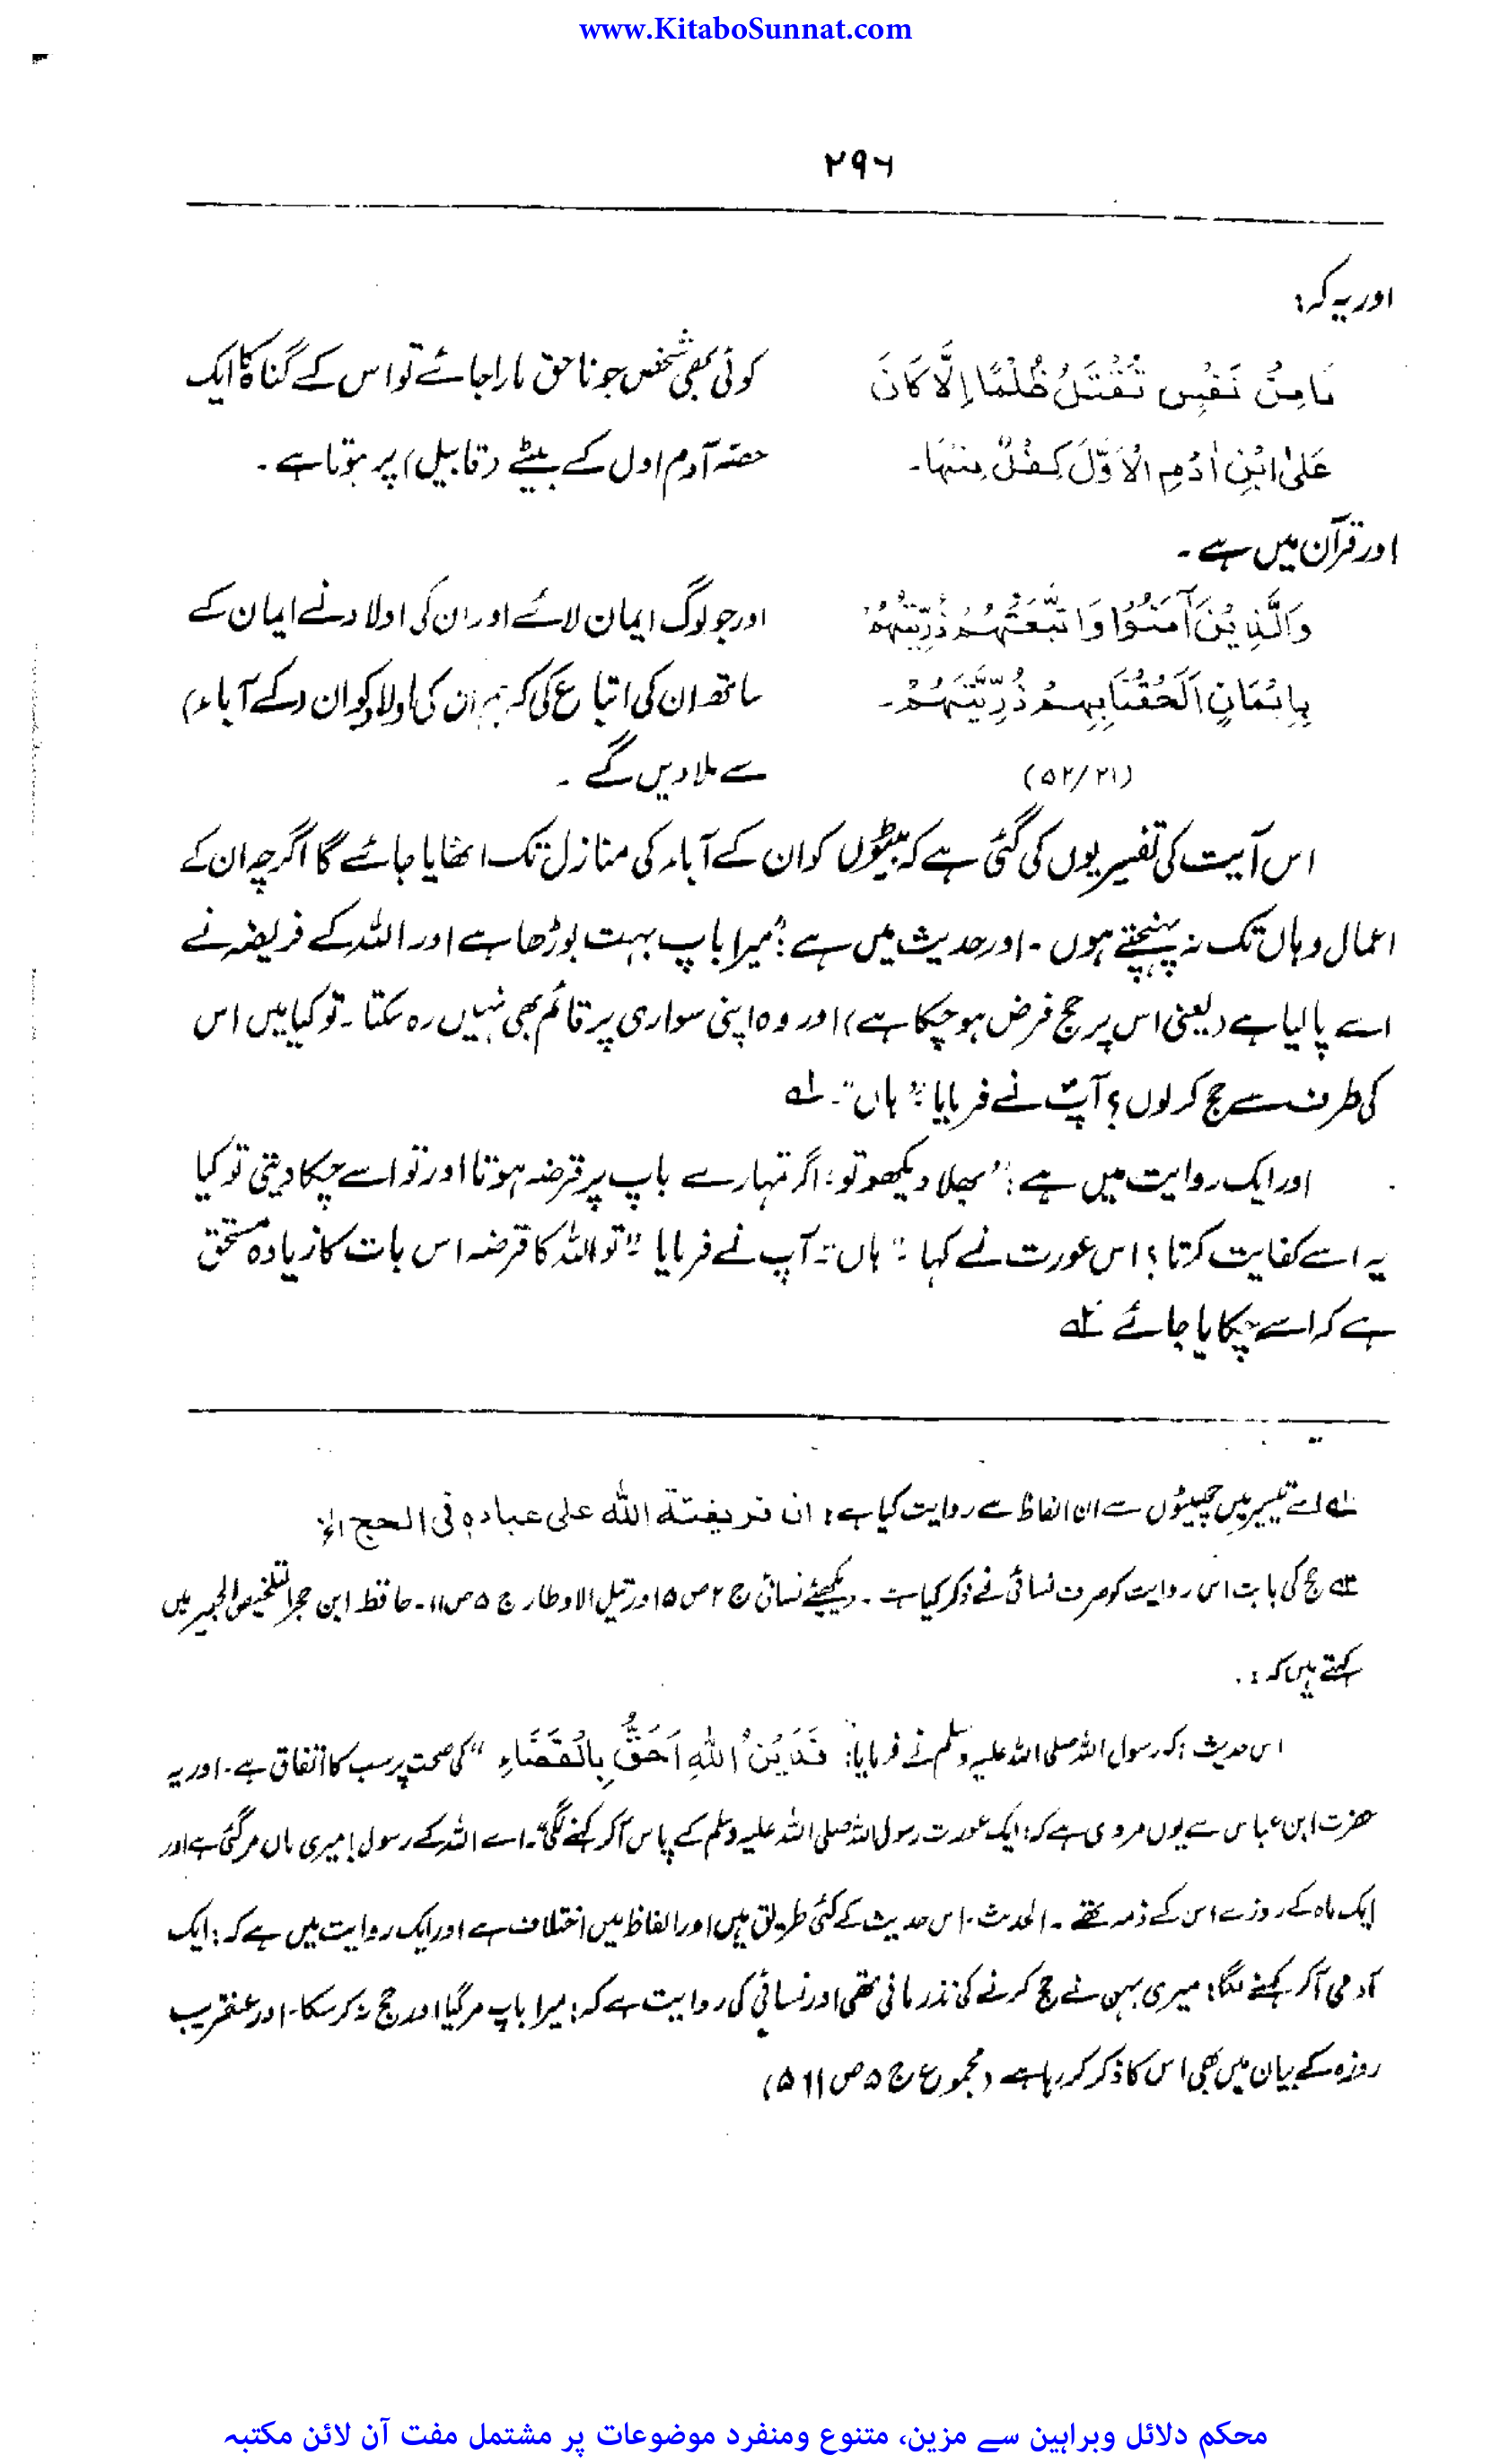 www.KitaboSunnat.com
۲۹۶
اور یہ کہ:
مَا مِنْ نَفْسٍ تُقْتَلُ ظُلْمًا اِلَّا كَانَ
عَلیٰ ابْنِ اٰدَمِ الْاَوَّلَ كِفْلٌ مِنْهَا۔
کوئی بھی شخص جو ناحق مارا جائے تو اس کے گناہ کا ایک
حصّہ آدم اول کے بیٹے (قابیل) پر ہوتا ہے۔
اور قرآن میں ہے۔
وَالَّذِيْنَ آمَنُوْا وَاتَّبَعَتْهُمْ ذُرِّيَّتُهُمْ
بِاِيْمَانٍ اَلْحَقْنَا بِهِمْ ذُرِّيَّتَهُمْ۔
(۵۲/۲۱)
اور جو لوگ ایمان لائے اور ان کی اولاد نے ایمان کے
ساتھ ان کی اتباع کی کہ ہم ان کی اولاد کو ان (کے آباء)
سے ملا دیں گے۔
اس آیت کی تفسیر یوں کی گئی ہے کہ بیٹوں کو ان کے آباء کی منازل تک اٹھایا جائے گا اگرچہ ان کے
اعمال وہاں تک نہ پہنچتے ہوں۔ اور حدیث میں ہے: "میرا باپ بہت بوڑھا ہے اور اللہ کے فریضہ نے
اسے پا لیا ہے (یعنی اس پر حج فرض ہو چکا ہے) اور وہ اپنی سواری پر قائم بھی نہیں رہ سکتا۔ تو کیا میں اس
کی طرف سے حج کر لوں؟ آپؐ نے فرمایا: "ہاں"۔ لہ
اور ایک روایت میں ہے: "بھلا دیکھو تو: اگر تمہارے باپ پر قرضہ ہوتا اور تو اسے چکا دیتی تو کیا
یہ اسے کفایت کرتا؟ اس عورت نے کہا: "ہاں"۔ آپ نے فرمایا: "تو اللہ کا قرضہ اس بات کا زیادہ مستحق
ہے کہ اسے چکایا جائے ۲ہ
لہ اسے تیسیر میں چھیئوں سے ان الفاظ سے روایت کیا ہے: ان فریضۃ اللہ علی عبادہ فی الحج الخ
۲ہ حج کی بابت اس روایت کو صرف نسائی نے ذکر کیا ہے۔ دیکھئے نسائی ج ۲ ص ۵ اور نیل الاوطار ج ۵ ص ۱۱۔ حافظ ابن حجر التلخیص الحبیر میں
کہتے ہیں کہ:۔
اس حدیث: کہ رسول اللہ صلی اللہ علیہ وسلم نے فرمایا: "فَدَيْنُ اللهِ اَحَقُّ بِالْقَضَاءِ" کی صحت پر سب کا اتفاق ہے۔ اور یہ
حضرت ابن عباس سے یوں مروی ہے کہ: ایک عورت رسول اللہ صلی اللہ علیہ وسلم کے پاس آ کر کہنے لگی "۔ اے اللہ کے رسول! میری ماں مر گئی ہے اور
ایک ماہ کے روزے اس کے ذمہ تھے۔ الحدیث۔ اس حدیث کے کئی طریق ہیں اور الفاظ میں اختلاف ہے اور ایک روایت میں ہے کہ: ایک
آدمی آ کر کہنے لگا: میری بہن نے حج کرنے کی نذر مانی تھی اور نسائی کی روایت ہے کہ: میرا باپ مر گیا اور حج نہ کر سکا۔ اور عنقریب
روزہ کے بیان میں بھی اس کا ذکر کر رہا ہے (مجموع ج ۵ ص ۵۱۱)
محکم دلائل وبراہین سے مزین، متنوع ومنفرد موضوعات پر مشتمل مفت آن لائن مکتبہ